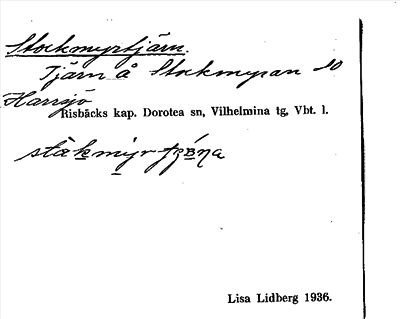 Stockmyrtjärn.
Tjärn å Stockmyran SO
Harrsjö
Risbäcks kap. Dorotea sn, Vilhelmina tg, Vbt. l.
Lisa Lidberg 1936.